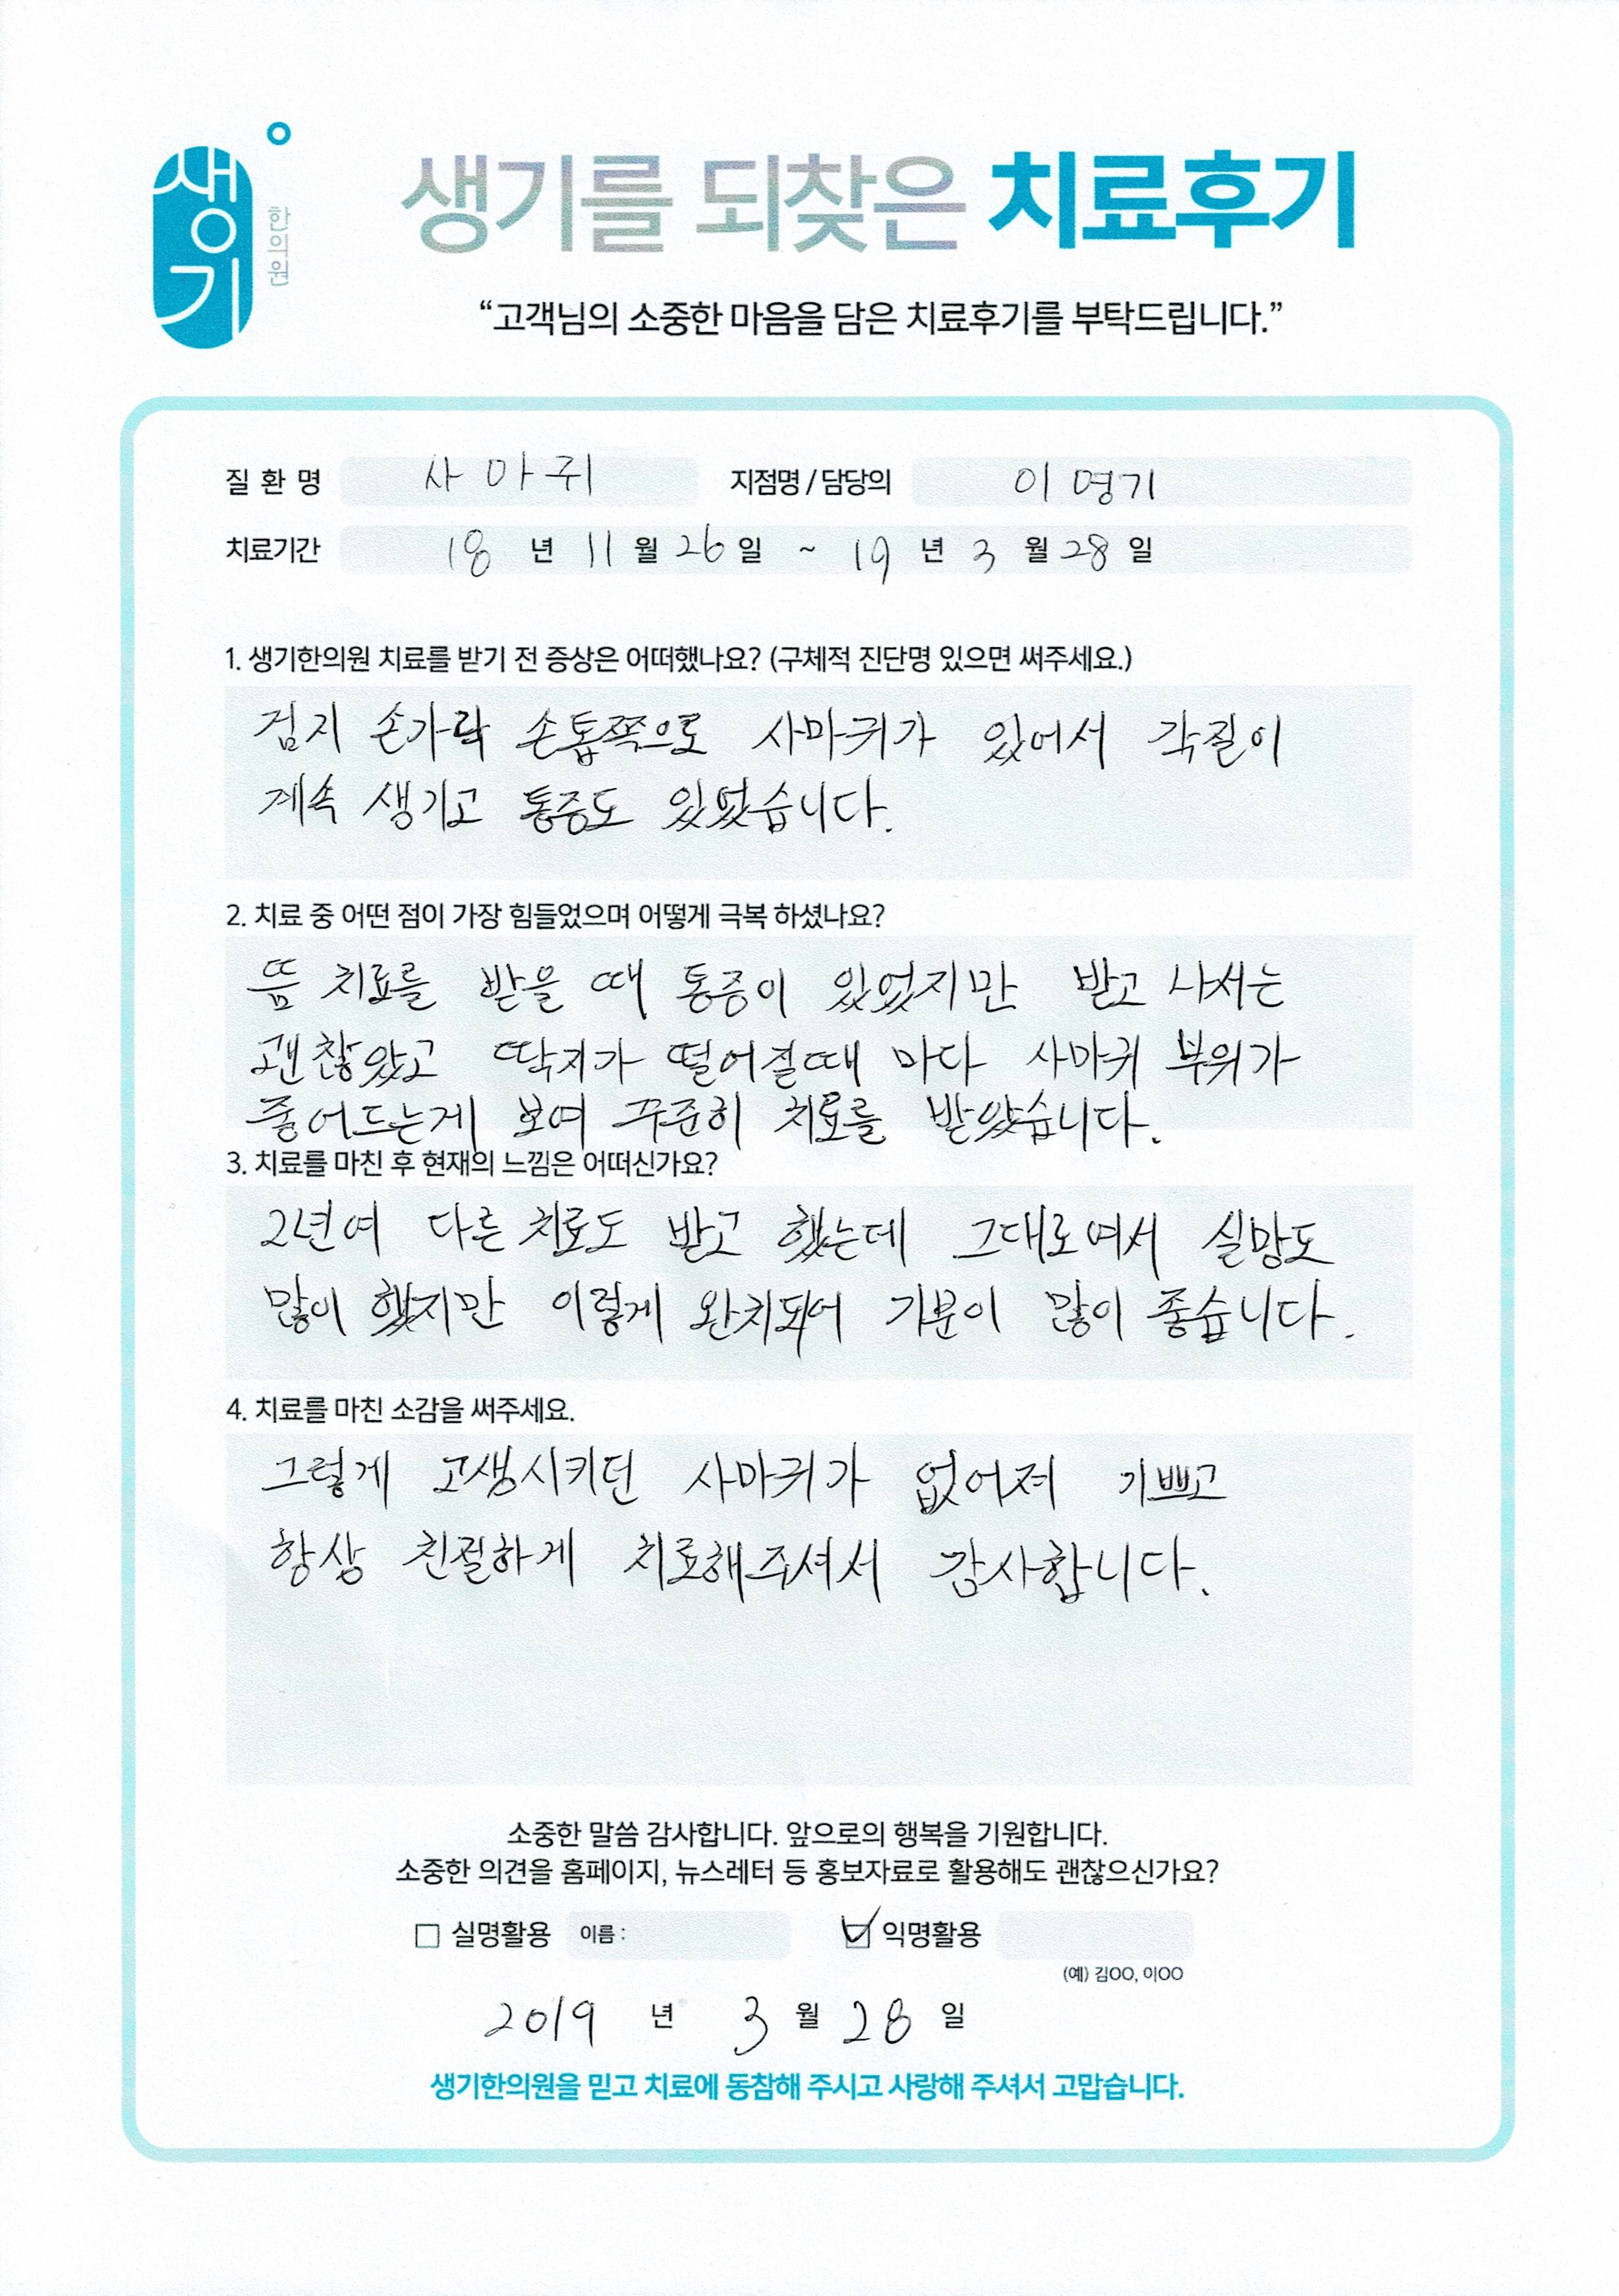 생기 한의원
생기를 되찾은 치료후기
“고객님의 소중한 마음을 담은 치료후기를 부탁드립니다.”
질 환 명 사마귀 지점명 / 담당의 이명기
치료기간 18 년 11 월 26 일 ~ 19 년 3 월 28 일
1. 생기한의원 치료를 받기 전 증상은 어떠했나요? (구체적 진단명 있으면 써주세요.)
검지 손가락 손톱쪽으로 사마귀가 있어서 각질이
계속 생기고 통증도 있었습니다.
2. 치료 중 어떤 점이 가장 힘들었으며 어떻게 극복 하셨나요?
뜸 치료를 받을 때 통증이 있었지만 받고 나서는
괜찮았고 딱지가 떨어질때 마다 사마귀 부위가
줄어드는게 보여 꾸준히 치료를 받았습니다.
3. 치료를 마친 후 현재의 느낌은 어떠신가요?
2년여 다른 치료도 받고 했는데 그대로여서 실망도
많이 했지만 이렇게 완치되어 기분이 많이 좋습니다.
4. 치료를 마친 소감을 써주세요.
그렇게 고생시키던 사마귀가 없어져 기쁘고
항상 친절하게 치료해주셔서 감사합니다.
소중한 말씀 감사합니다. 앞으로의 행복을 기원합니다.
소중한 의견을 홈페이지, 뉴스레터 등 홍보자료로 활용해도 괜찮으신가요?
실명활용 이름 : 익명활용
(예) 김OO, 이OO
2019 년 3 월 28 일
생기한의원을 믿고 치료에 동참해 주시고 사랑해 주셔서 고맙습니다.